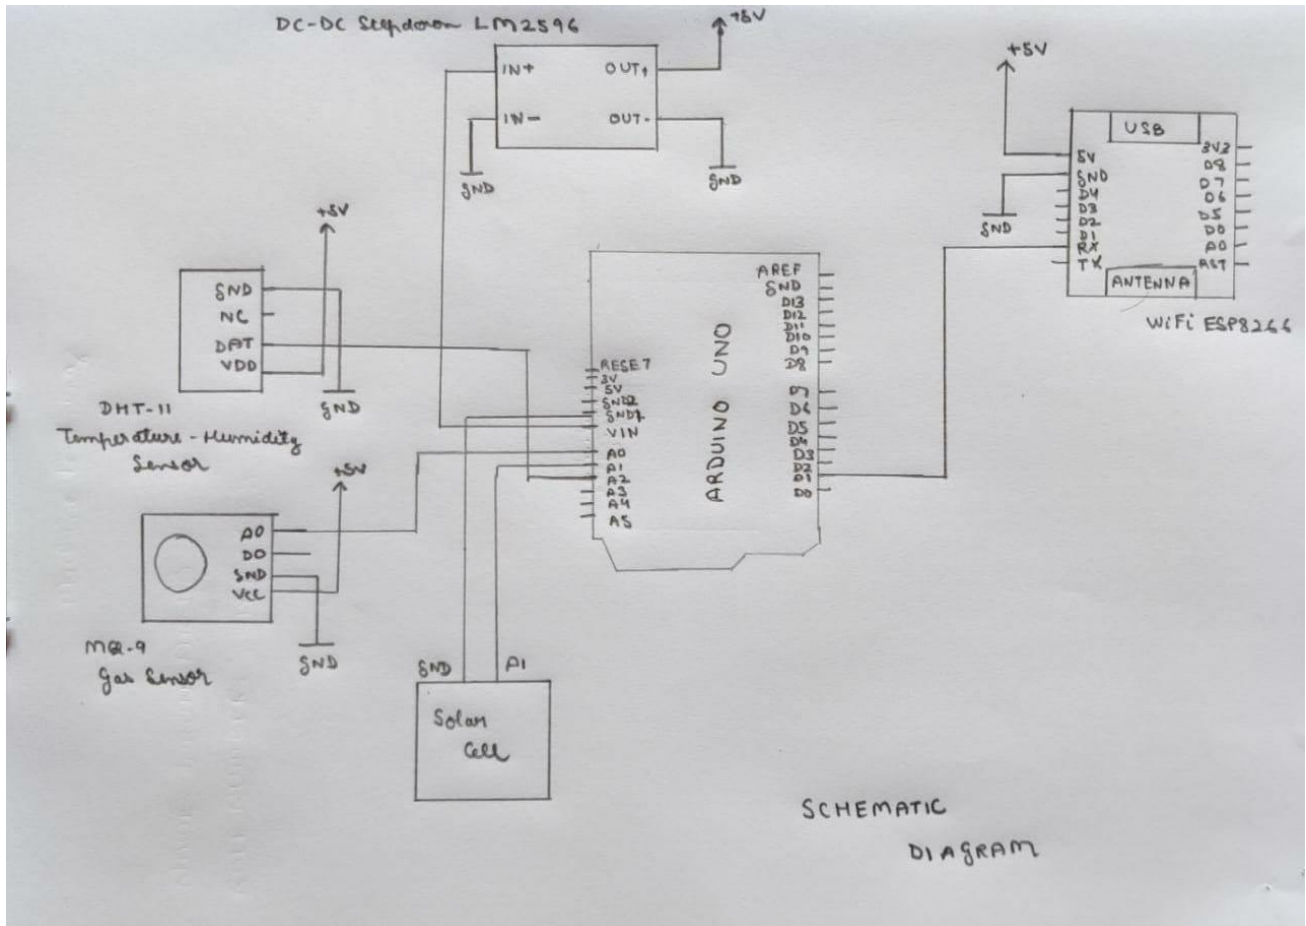 DC-DC Stepdown LM2596
IN+
OUT+
IN-
OUT-
+5V
GND
GND
+5V
USB
5V
GND
D4
D3
D2
D1
RX
TX
3V3
D8
D7
D6
D5
D0
A0
RST
ANTENNA
GND
WiFi ESP8266
+5V
GND
NC
DAT
VDD
GND
DHT-11
Temperature-Humidity
Sensor
+5V
A0
D0
SND
VCC
GND
MQ-9
Gas Sensor
ARDUINO UNO
RESET
3V
5V
GND2
GND1
VIN
A0
A1
A2
A3
A4
A5
AREF
GND
D13
D12
D11
D10
D9
D8
D7
D6
D5
D4
D3
D2
D1
D0
GND
A1
Solar
Cell
SCHEMATIC
DIAGRAM